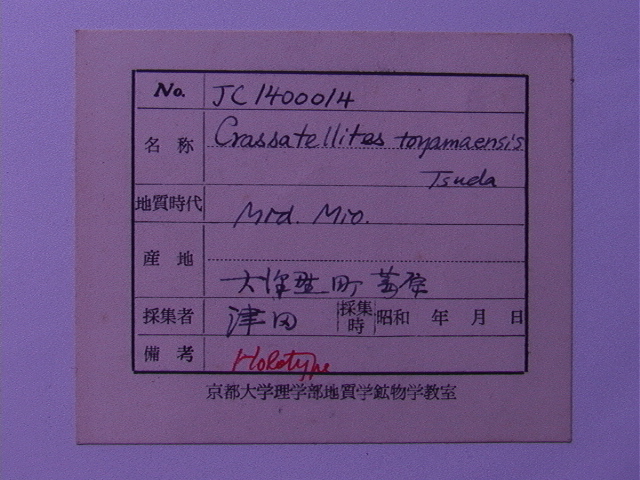 No. JC1400014
名称 Crassatellites toyamaensis
Tsuda
地質時代 Mid. Mio.
産地
町
採集者 津田 採集時 昭和 年 月 日
備考 Holotype
京都大学理学部地質学鉱物学教室